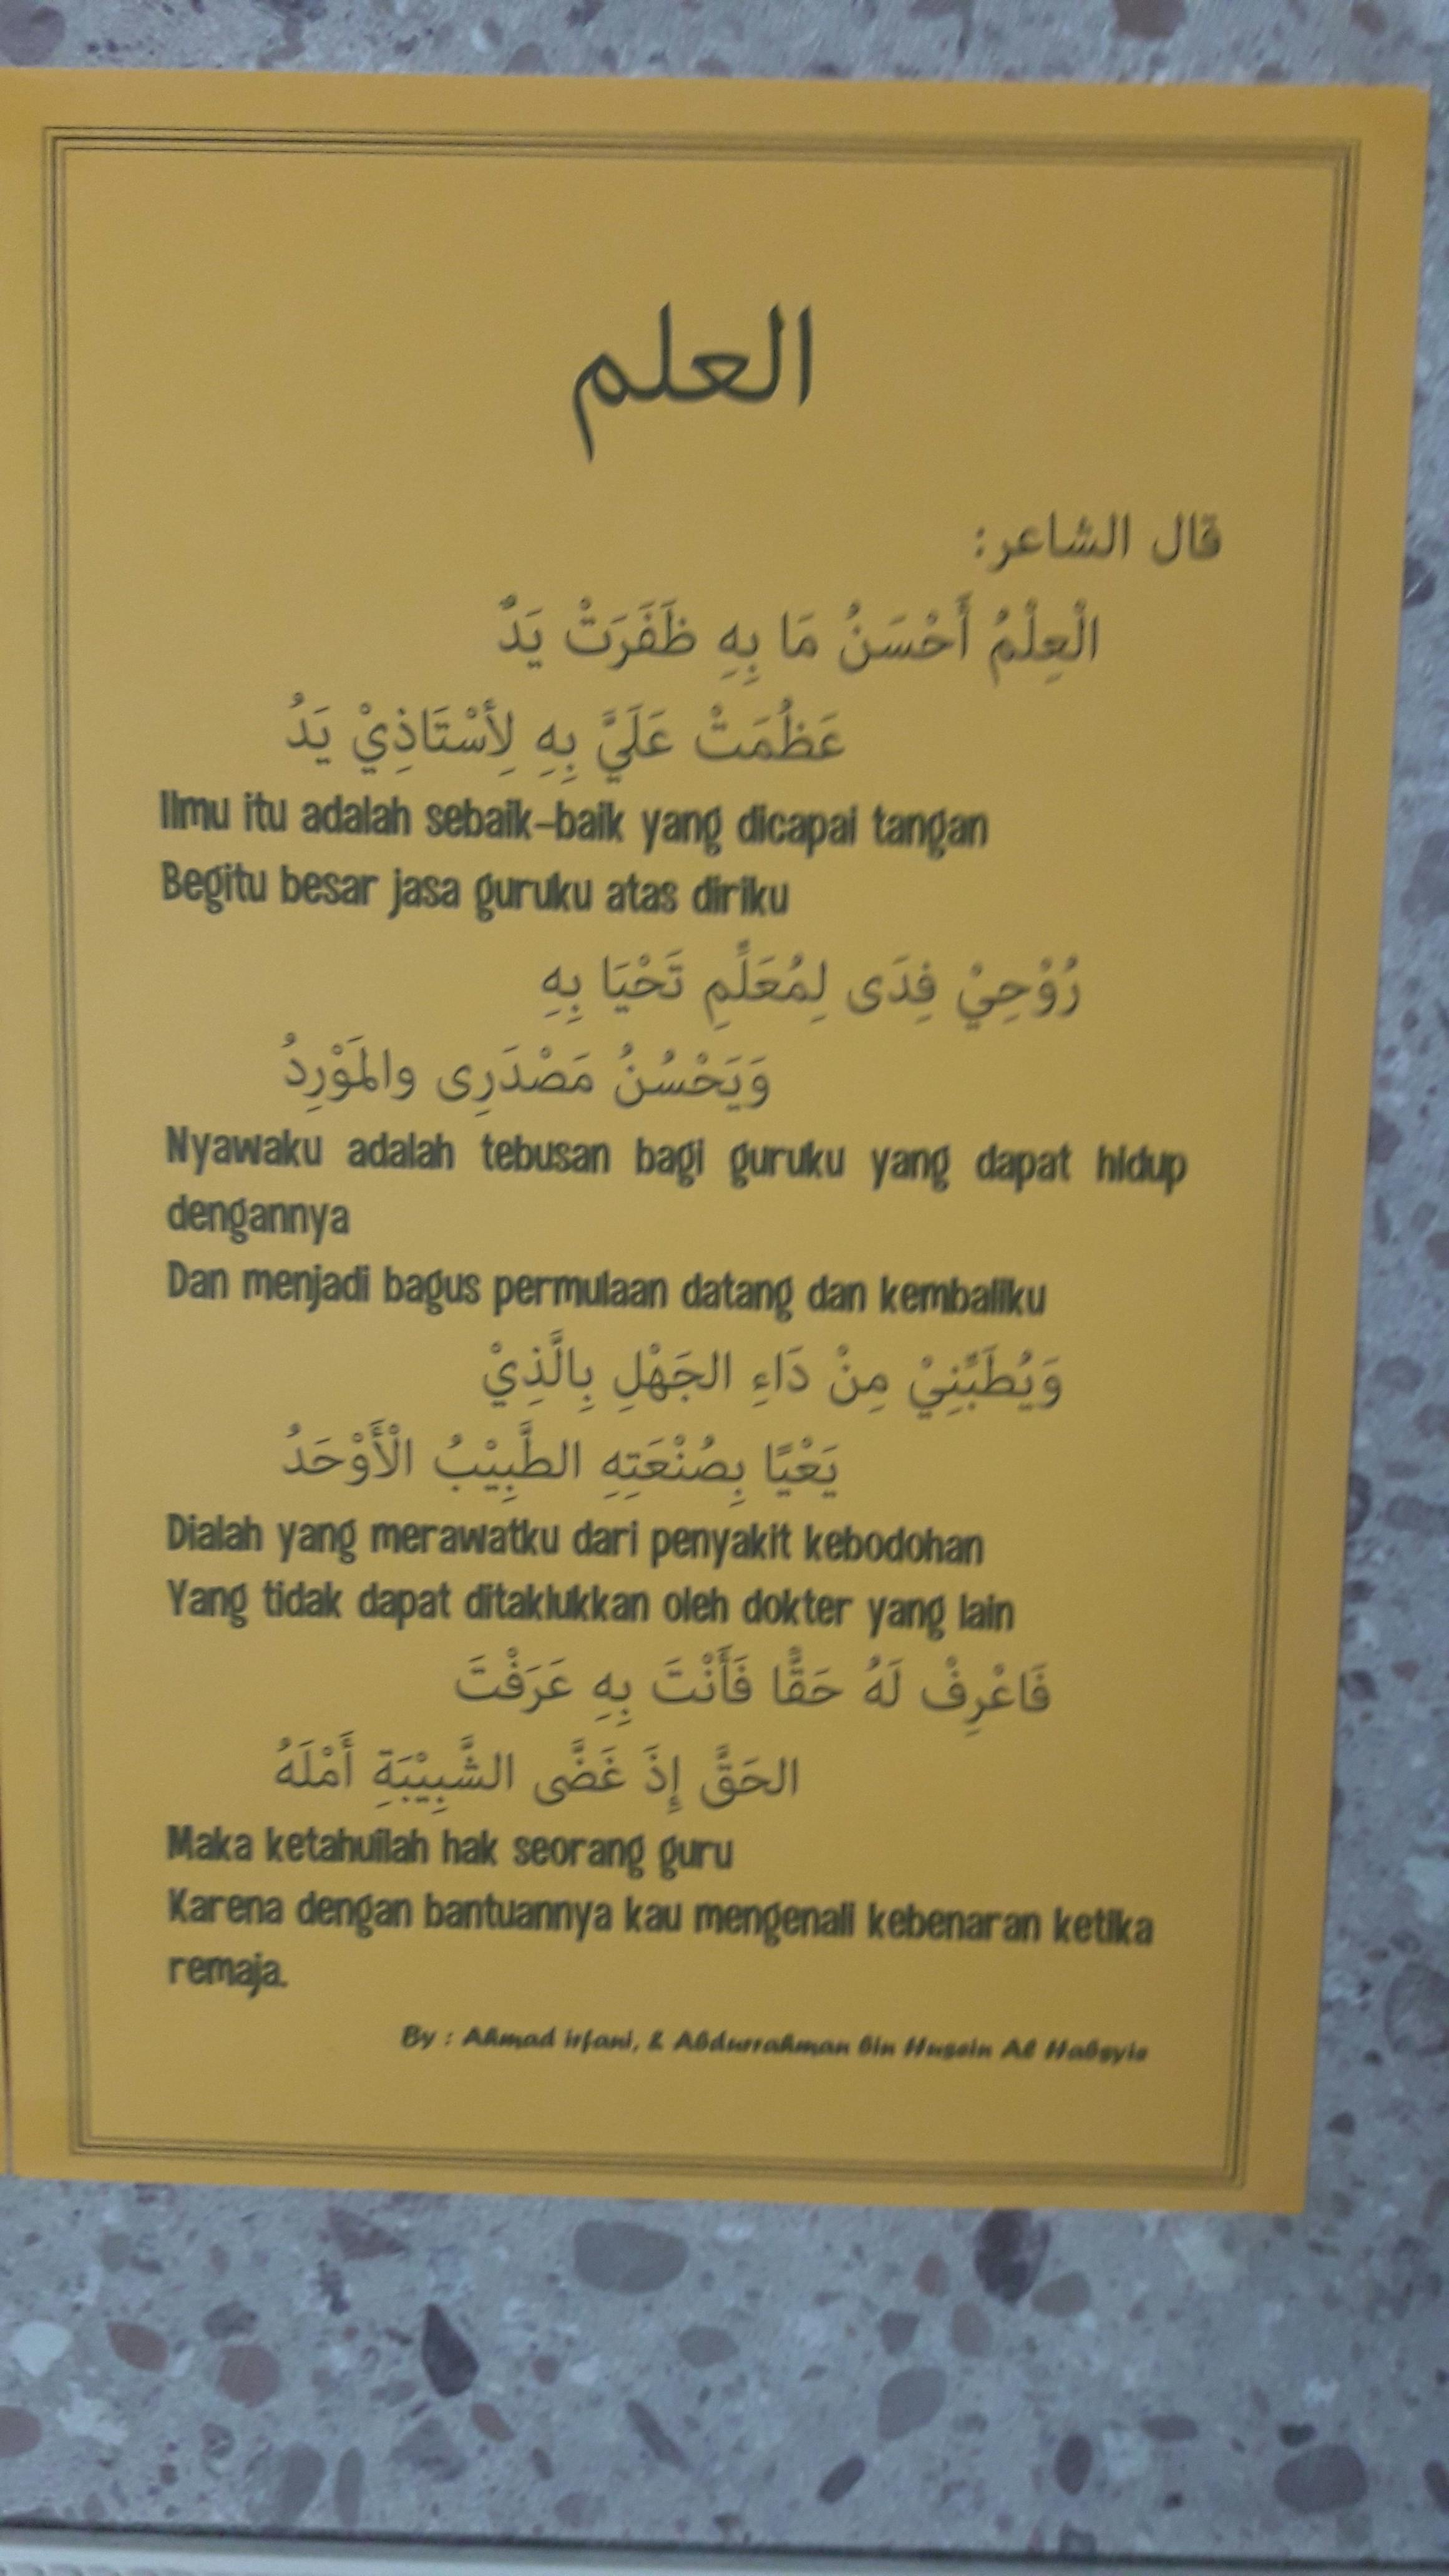 العلم
قال الشاعر:
الْعِلْمُ أَحْسَنُ مَا بِهِ ظَفَرَتْ يَدٌ
عَظُمَتْ عَلَيَّ بِهِ لِأسْتَاذِيْ يَدُ
Ilmu itu adalah sebaik-baik yang dicapai tangan
Begitu besar jasa guruku atas diriku
رُوْحِيْ فِدَى لِمُعَلِّمِ تَحْيَا بِهِ
وَيَحْسُنُ مَصْدَرِى والمَوْرِدُ
Nyawaku adalah tebusan bagi guruku yang dapat hidup
dengannya
Dan menjadi bagus permulaan datang dan kembaliku
وَيُطَبِّنِيْ مِنْ دَاءِ الجَهْلِ بِالَّذِيْ
يَعْيًا بِصُنْعَتِهِ الطَّبِيْبُ الْأَوْحَدُ
Dialah yang merawatku dari penyakit kebodohan
Yang tidak dapat ditaklukkan oleh dokter yang lain
فَاعْرِفْ لَهُ حَقًّا فَأَنْتَ بِهِ عَرَفْتَ
الحَقَّ إِذَ غَضَّى الشَّبِيْبَةِ أَمْلَهُ
Maka ketahuilah hak seorang guru
Karena dengan bantuannya kau mengenali kebenaran ketika
remaja.
By : Ahmad irfani, & Abdurrahman bin Husein Al Habsyie